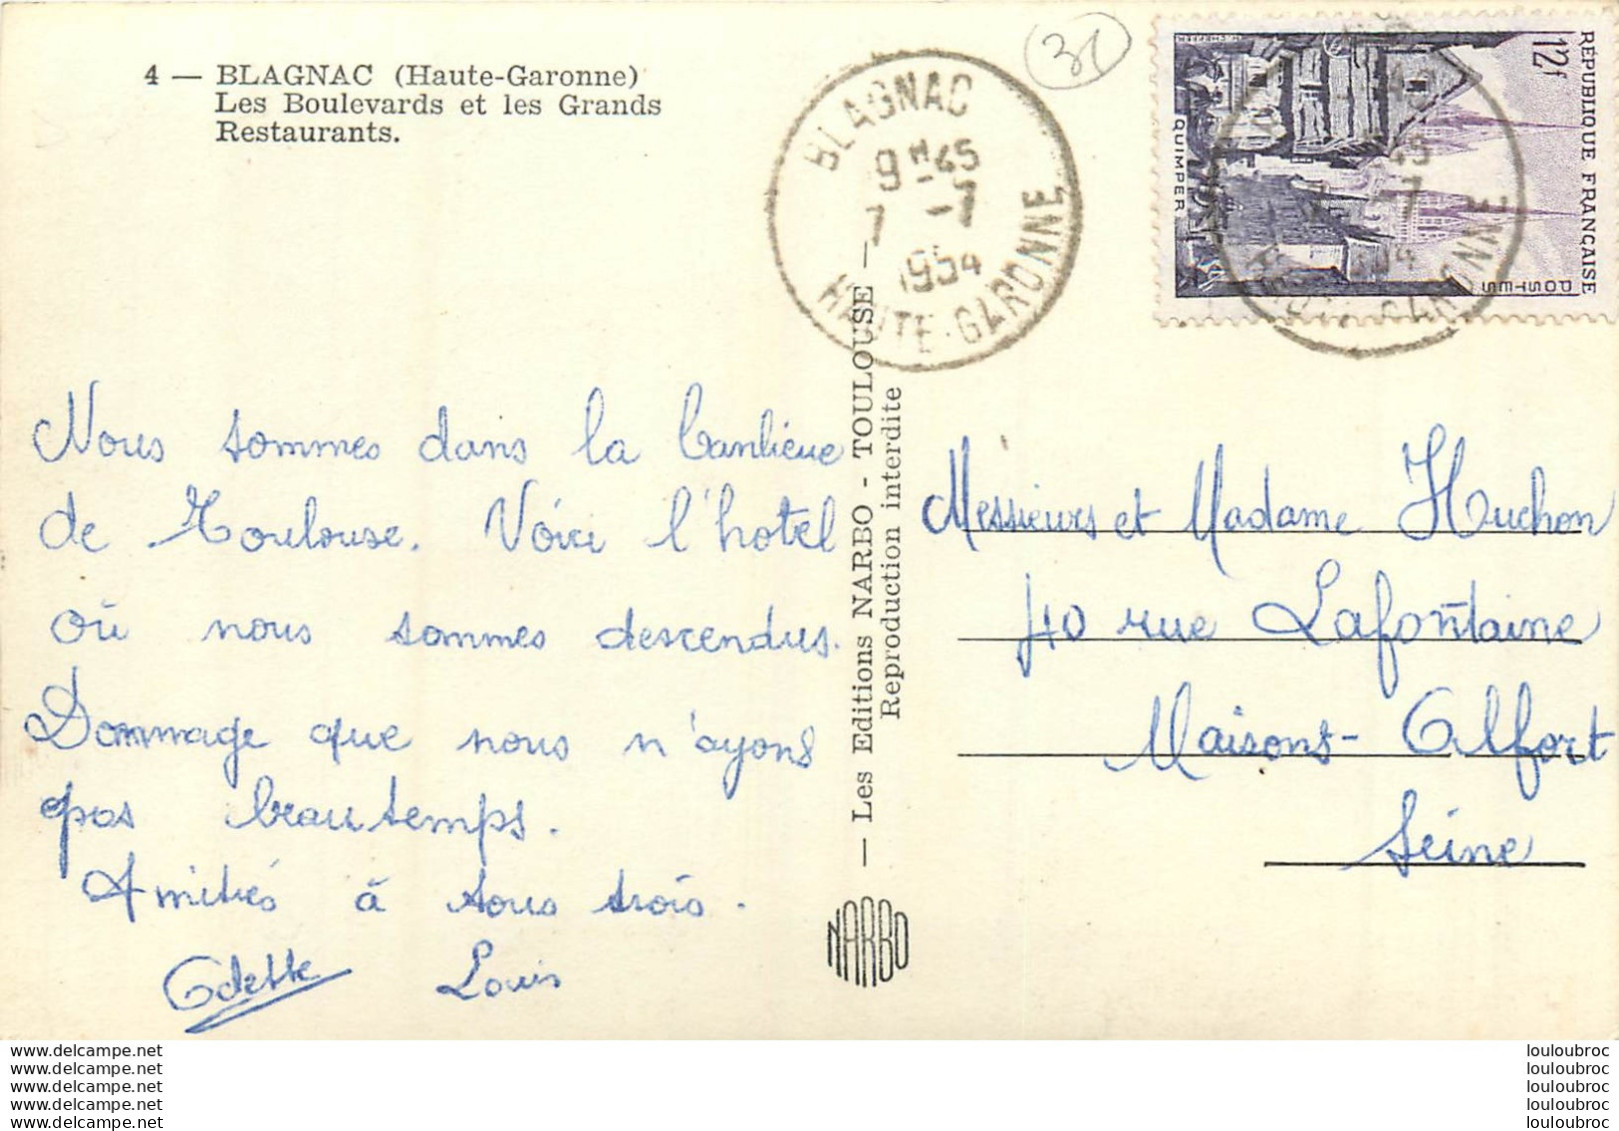 4 — BLAGNAC (Haute-Garonne)
Les Boulevards et les Grands
Restaurants.
BLAGNAC
9H45
7 -7
1954
HAUTE-GARONNE
RÉPUBLIQUE FRANÇAISE
12f
POSTES
QUIMPER
45
-7
GARONNE
Nous sommes dans la banlieue
de Toulouse. Voici l'hotel
où nous sommes descendus.
Dommage que nous n'ayons
pas beau temps.
Amitiés à tous trois.
Odette Louis
— Les Editions NARBO - TOULOUSE —
Reproduction interdite
NARBO
Messieurs et Madame Huchon
40 rue Lafontaine
Maisons-Alfort
Seine
www.delcampe.net
www.delcampe.net
www.delcampe.net
www.delcampe.net
www.delcampe.net
louloubroc
louloubroc
louloubroc
louloubroc
louloubroc